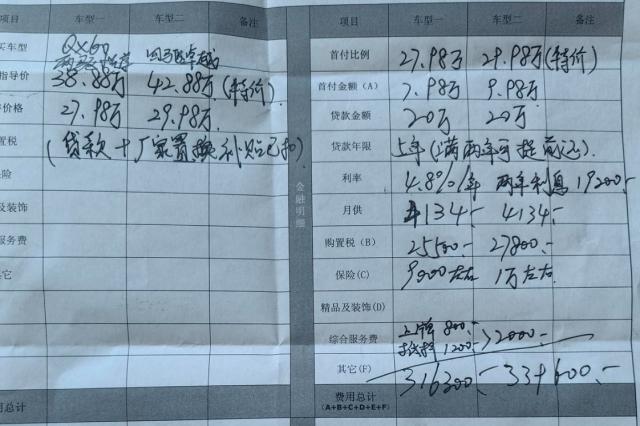 项目 车型一 车型二 备注
买车型 QX60 两驱 四驱卓越
指导价 38.88万 42.88万 (特价)
价格 27.98万 29.98万
置税 (贷款+厂家置换补贴已扣)
保险
及装饰
服务费
其它
用总计
金融明细
项目 车型一 车型二 备注
首付比例 27.98万 29.98万 (特价)
首付金额(A) 7.98万 9.98万
贷款金额 20万 20万
贷款年限 5年 (满两年可提前还)
利率 4.8%/年 两年利息19200.-
月供 4134.- 4134.-
购置税(B) 25500.- 27800.-
保险(C) 9000左右 1万左右
精品及装饰(D)
综合服务费 上牌 800.- 1200.- >2000.-
其它(F) 316300.- 337600.-
费用总计
(A+B+C+D+E+F)